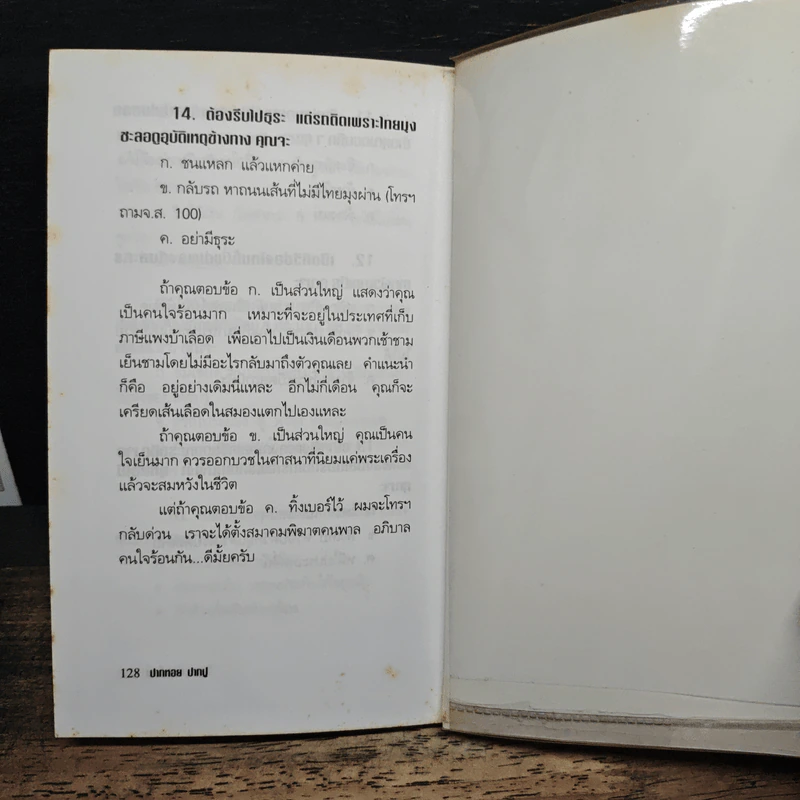 14. ต้องรีบไปธุระ แต่รถติดเพราะไทยมุง
ชะลอดูอุบัติเหตุข้างทาง คุณจะ
ก. ชนแหลก แล้วแหกค่าย
ข. กลับรถ หาถนนเส้นที่ไม่มีไทยมุงผ่าน (โทรฯ
ถามจ.ส. 100)
ค. อย่ามีธุระ
ถ้าคุณตอบข้อ ก. เป็นส่วนใหญ่ แสดงว่าคุณ
เป็นคนใจร้อนมาก เหมาะที่จะอยู่ในประเทศที่เก็บ
ภาษีแพงบ้าเลือด เพื่อเอาไปเป็นเงินเดือนพวกเช้าชาม
เย็นชามโดยไม่มีอะไรกลับมาถึงตัวคุณเลย คำแนะนำ
ก็คือ อยู่อย่างเดิมนี่แหละ อีกไม่กี่เดือน คุณก็จะ
เครียดเส้นเลือดในสมองแตกไปเองแหละ
ถ้าคุณตอบข้อ ข. เป็นส่วนใหญ่ คุณเป็นคน
ใจเย็นมาก ควรออกบวชในศาสนาที่นิยมแค่พระเครื่อง
แล้วจะสมหวังในชีวิต
แต่ถ้าคุณตอบข้อ ค. ทิ้งเบอร์ไว้ ผมจะโทรฯ
กลับด่วน เราจะได้ตั้งสมาคมพิฆาตคนพาล อภิบาล
คนใจร้อนกัน...ดีมั้ยครับ
128 ปากหอย ปากปู